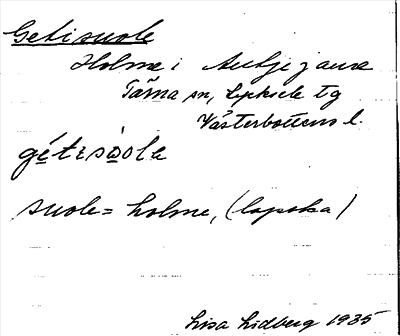 Getisuole
Holme i Autjejaure
Tärna sn, Lycksele tg
Västerbottens l.
gétisòola
suole = holme, (lapska)
Lisa Lidberg 1935